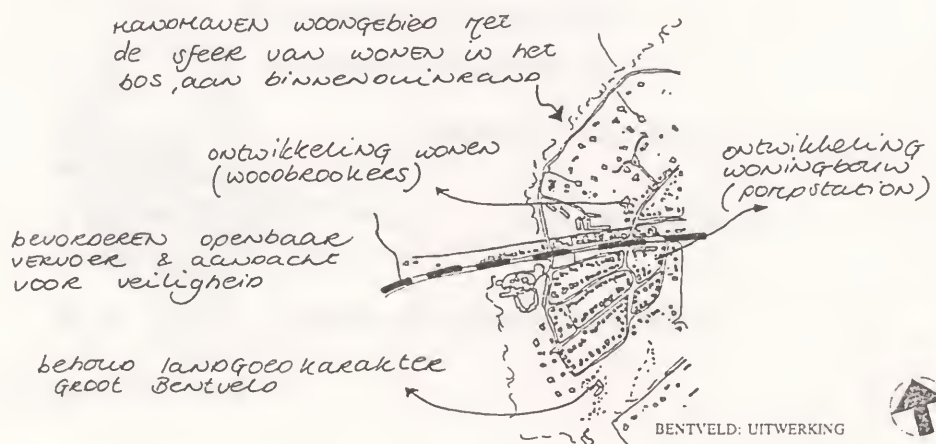 HANDHAVEN WOONGEBIED MET
DE SFEER VAN WONEN IN HET
BOS, AAN BINNENDUINRAND
ONTWIKKELING WONEN
(WOODBROOKERS)
ONTWIKKELING
WONINGBOUW
(POMPSTATION)
BEVORDEREN OPENBAAR
VERVOER & AANDACHT
VOOR VEILIGHEID
BEHOUD LANDGOEDKARAKTER
GROOT BENTVELD
BENTVELD: UITWERKING